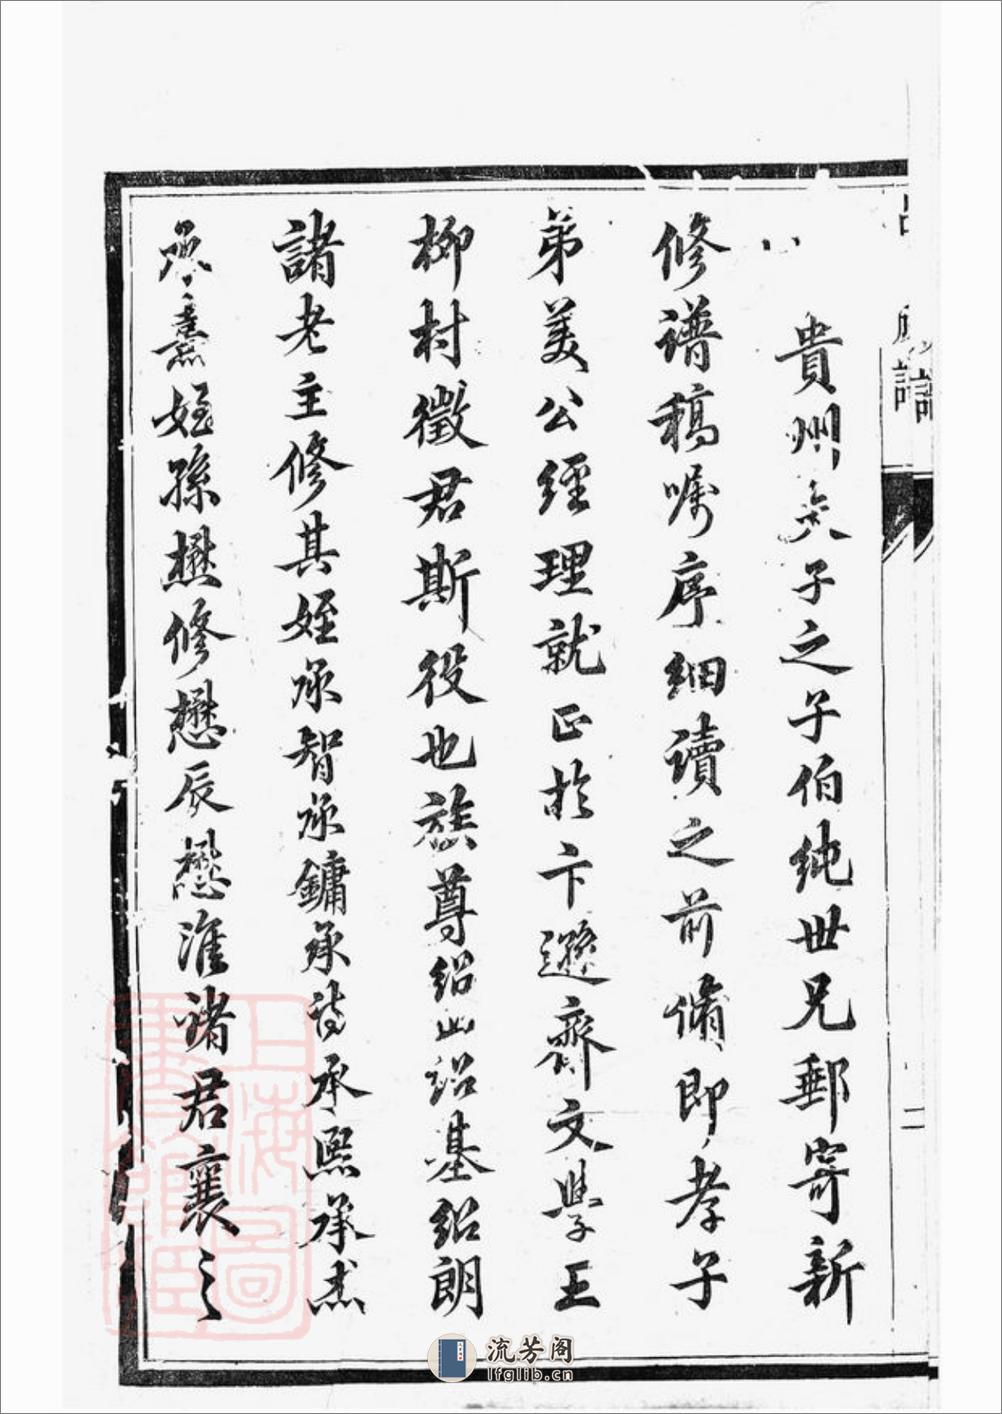 貴州夫子之子伯純世兄郵寄新
修譜稿嘱序細讀之前俻即孝子
弟美公經理就正於卞遜齋文學王
柳村徵君斯役也族尊紹山紹基紹朗
諸老主修其姪承智承鏞承詩承熙承杰
承熹姪孫懋修懋辰懋淮諸君襄之
二
上海圖書館藏
流芳阁
lfglib.cn